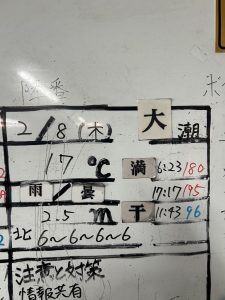 陸番
2/8(木) 大潮
17℃ 満 6:23 180
雨/曇 17:17 195
2.5m 干 11:43 96
北 6~6~6~6
注意と対策
情報共有